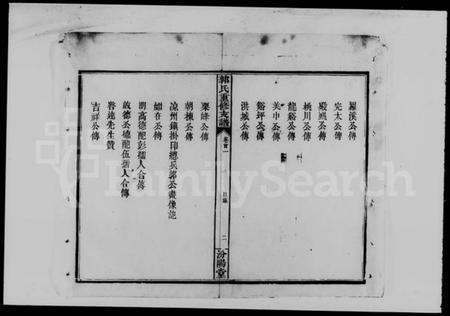 羅溪公傳
完太公傳
殿颺公傳
桃川公傳
龍谿公傳
美中公傳
谿坪公傳
洪城公傳
郭氏重修支譜
卷首一
目錄
二
汾陽堂
東峰公傳
朝棟公傳
涼州鎮掛印總兵郭公畫像記
如在公傳
明高德配彭孺人合傳
啟德公德配伍孺人合傳
魯達先生贊
吉祥公傳
FamilySearch